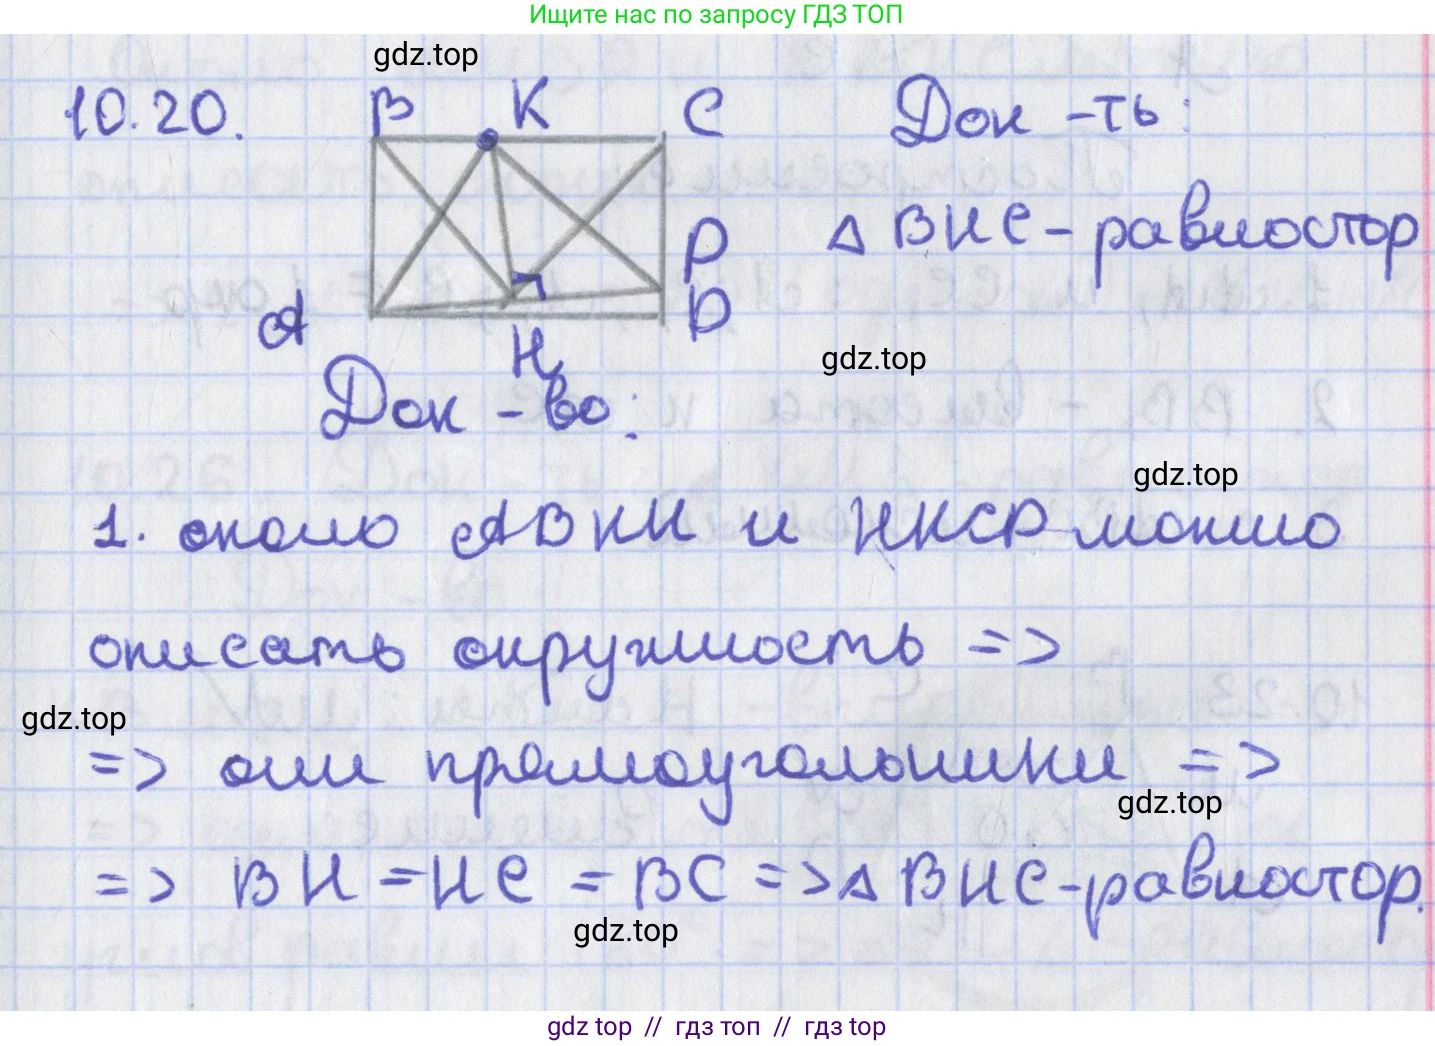 Ищите нас по запросу ГДЗ ТОП
gdz.top
10.20. B K C Док-ть:
P
Δ BHC - равностор
A D
H
gdz.top
Док-во:
gdz.top
1. около ABKH и HKCP можно
описать окружность =>
gdz.top
=> они прямоугольники =>
gdz.top
=> BH = HC = BC => Δ BHC - равностор.
gdz.top
gdz top // гдз топ // гдз top